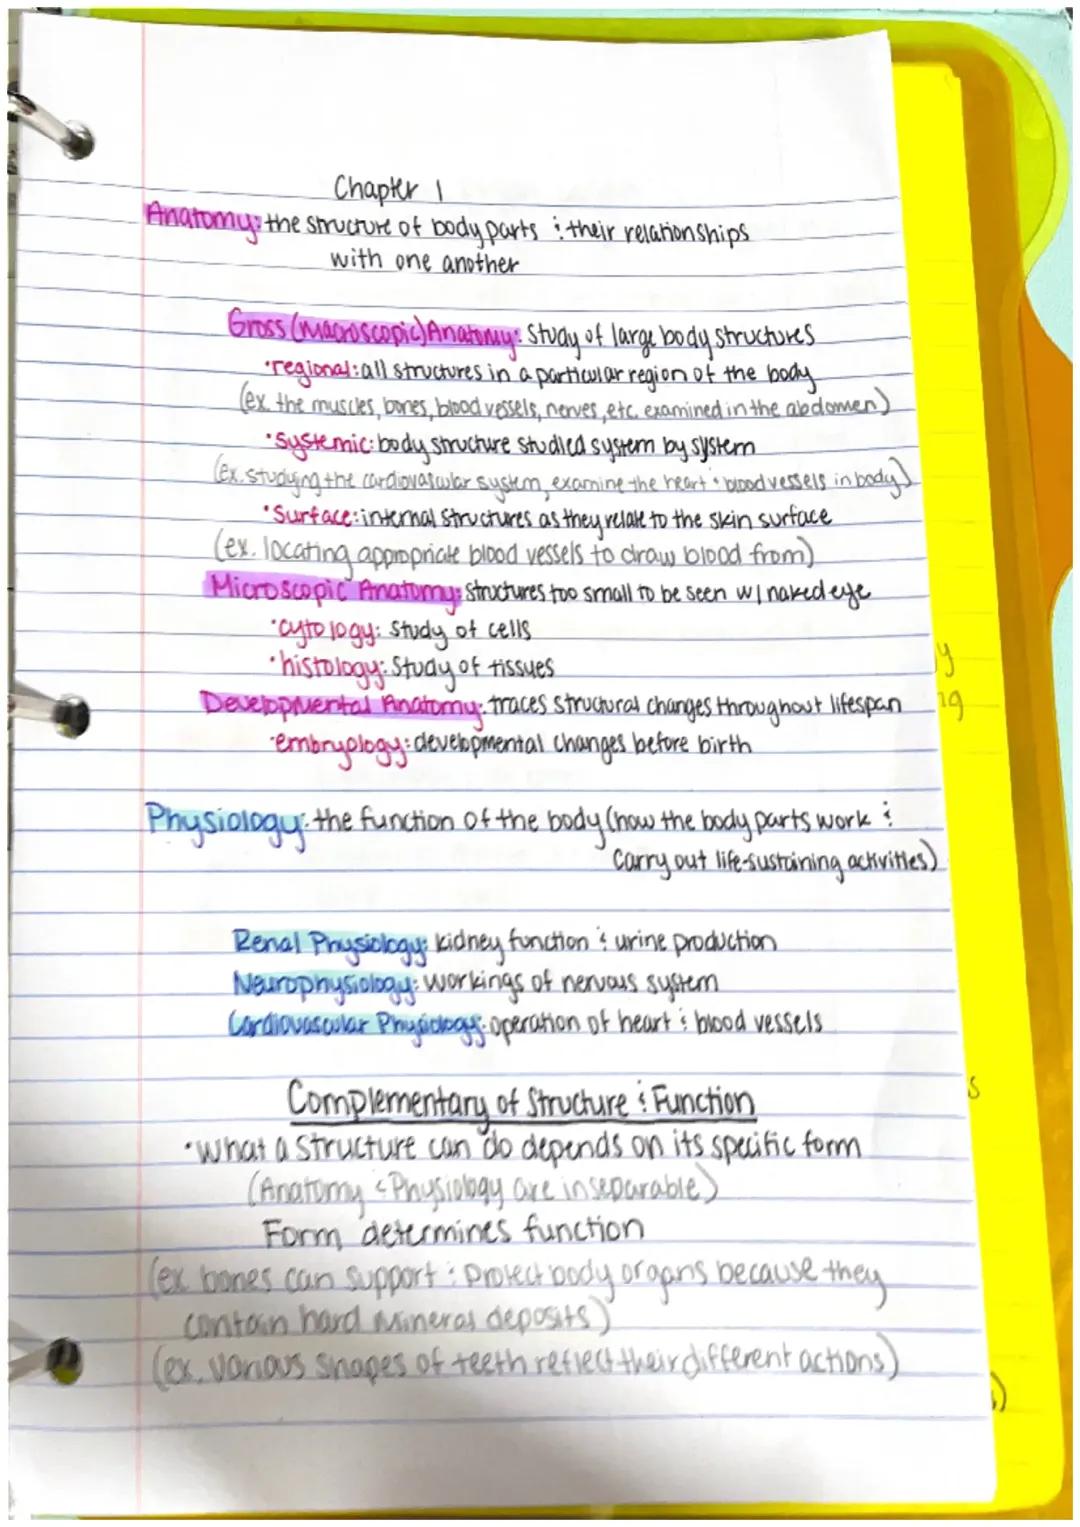 Chapter 1
Anatomy: the structure of body parts & their relationships
with one another
Gross (macroscopic) Anatomy: Study of large body structures
•regional: all structures in a particular region of the body
(ex. the muscles, bones, blood vessels, nerves, etc. examined in the abdomen)
•systemic: body structure studied system by system
(ex. studying the cardiovascular system, examine the heart & blood vessels in body)
•Surface: internal structures as they relate to the skin surface
(ex. locating appropriate blood vessels to draw blood from)
Microscopic Anatomy: structures too small to be seen w/ naked eye
•cytology: Study of cells
•histology: Study of tissues
Developmental Anatomy: traces structural changes throughout lifespan
•embryology: developmental changes before birth
Physiology: the function of the body (how the body parts work &
carry out life-sustaining activities)
Renal Physiology: kidney function & urine production
Neurophysiology: workings of nervous system
Cardiovascular Physiology: operation of heart & blood vessels
Complementary of Structure & Function
•What a structure can do depends on its specific form
(Anatomy & Physiology are inseparable)
Form determines function
(ex. bones can support & protect body organs because they
contain hard mineral deposits)
(ex. various shapes of teeth reflect their different actions)